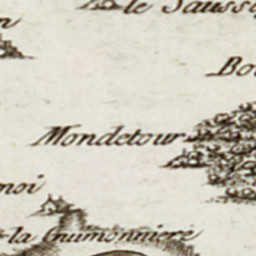 le Saussay
Bo
Mondetour
noi
la Gnumonniere